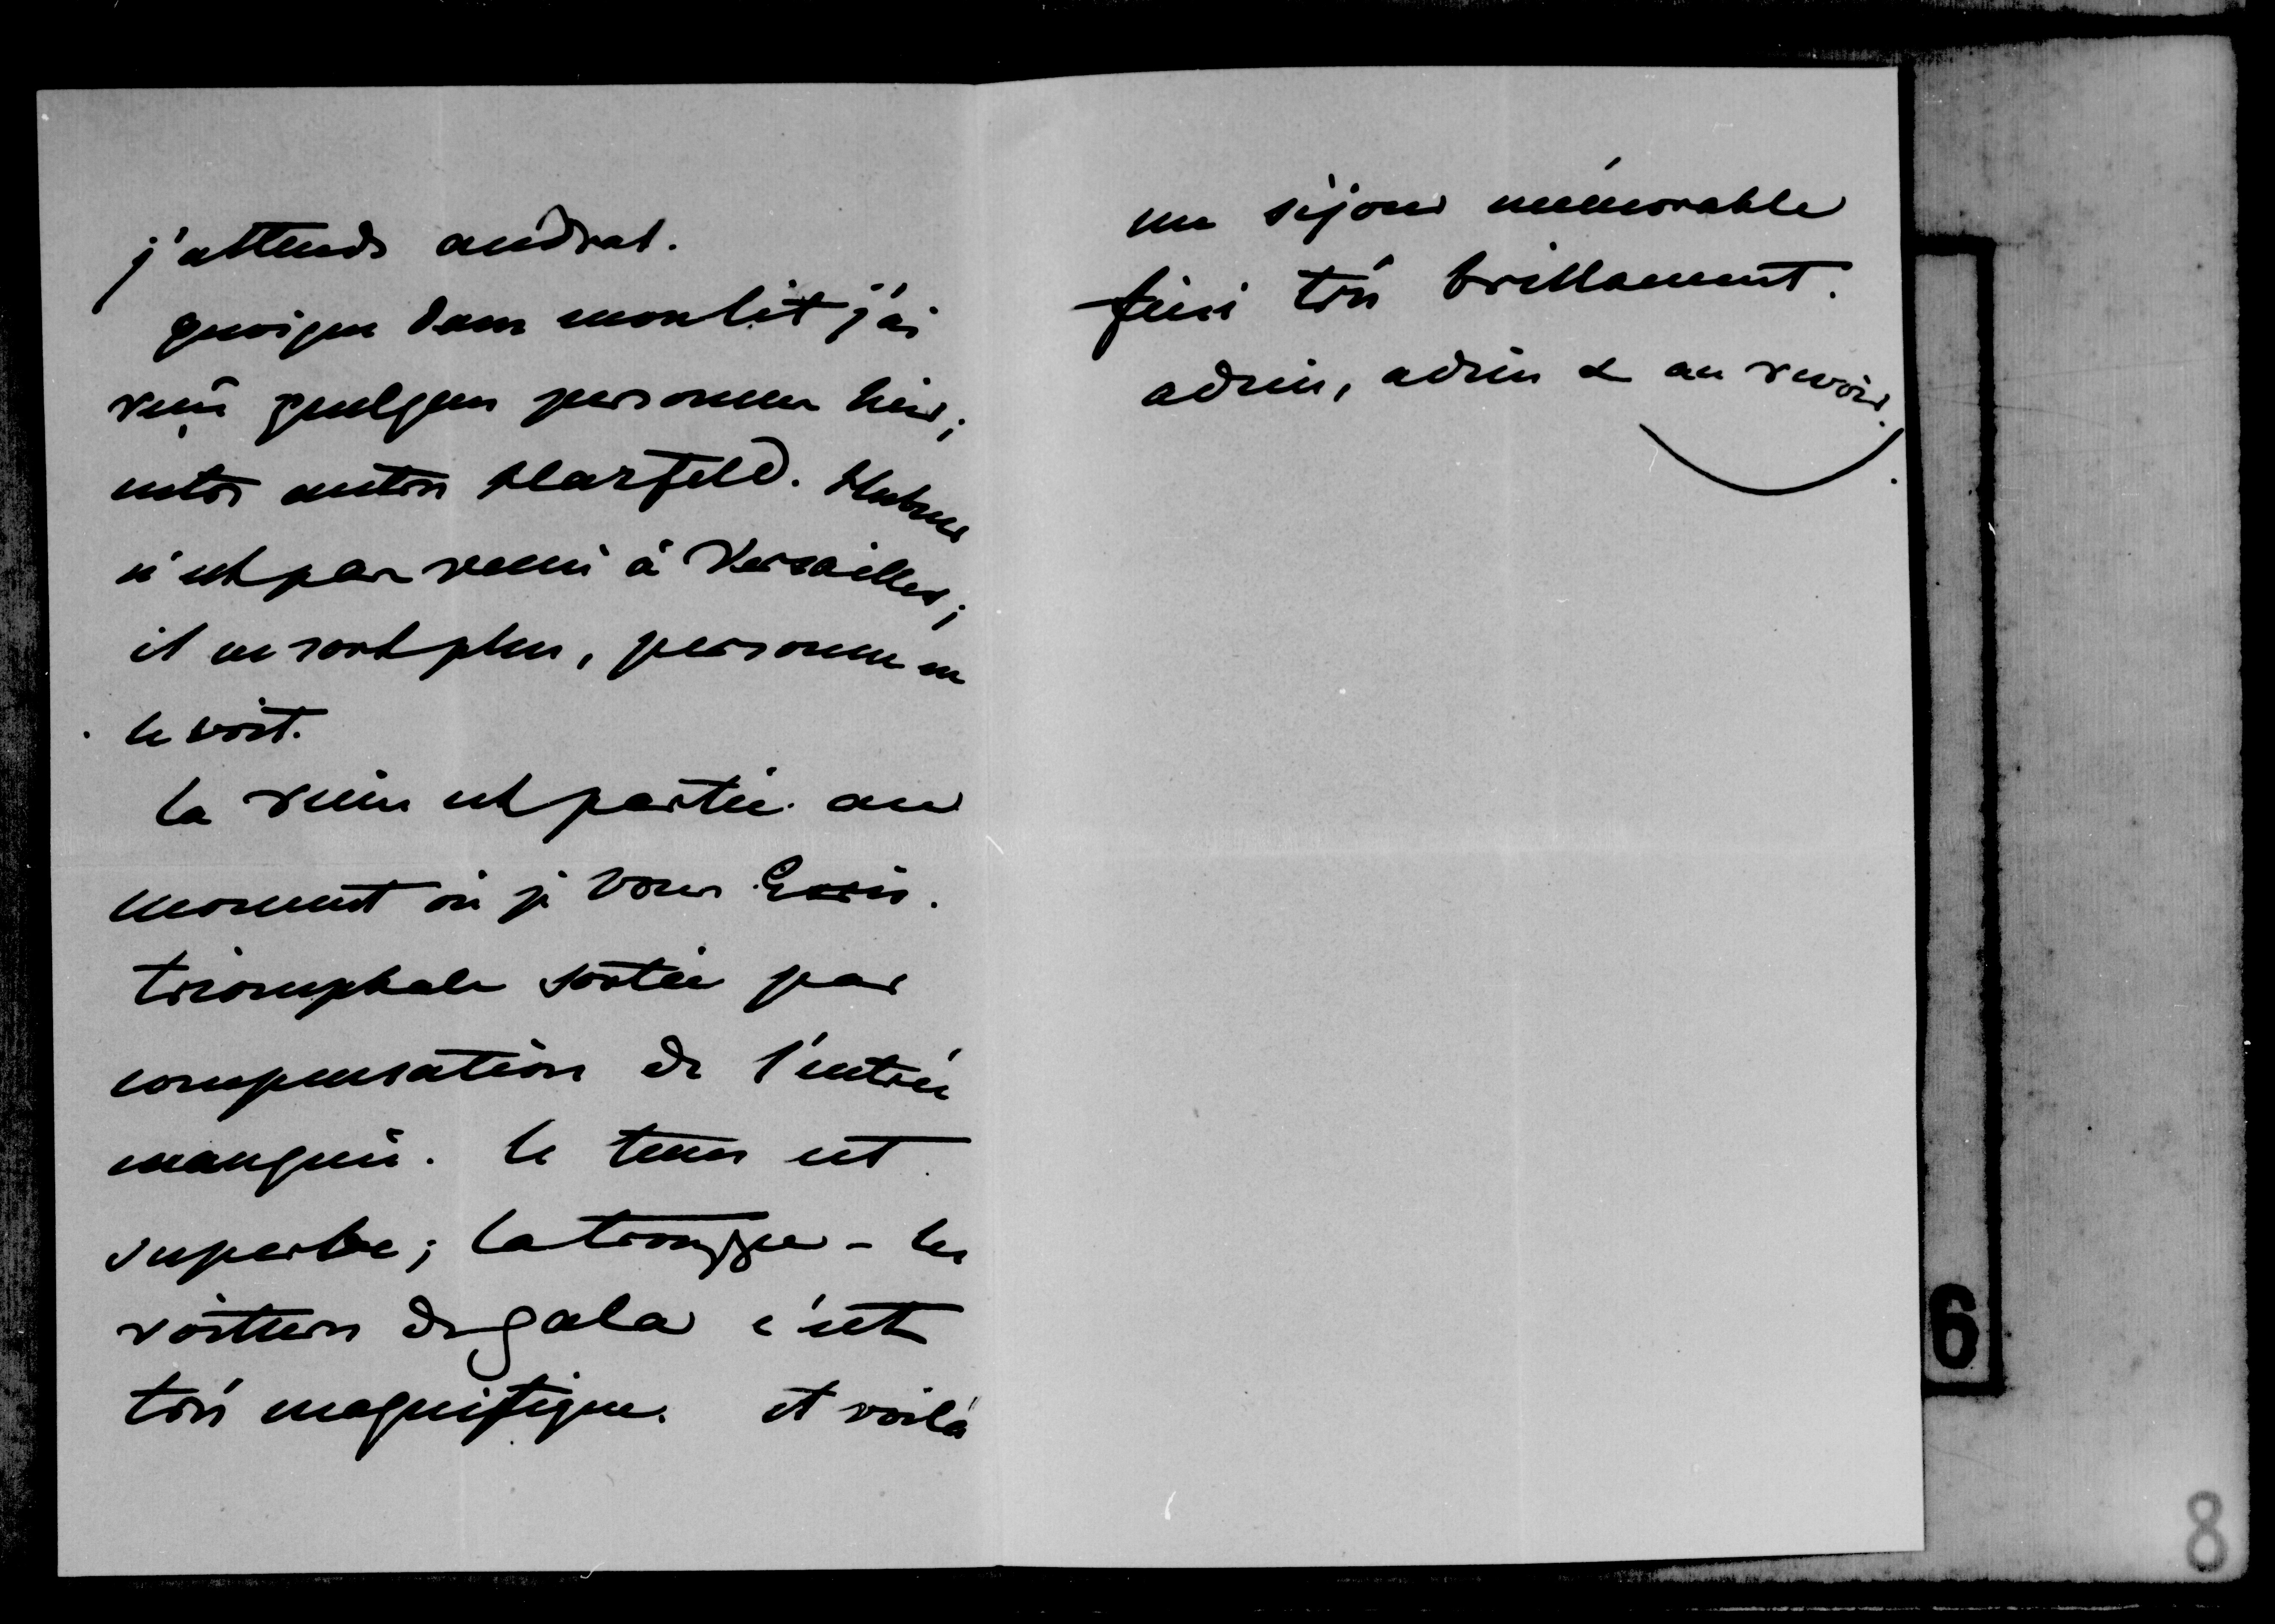 j'attends andral.
quoique dans mon lit j'ai
reçu quelques personnes hier;
entre autres Hatzfeld. Hubner
n'est pas venu à Versailles;
il ne sort plus, personne ne
le voit.
la reine est partie au
moment où je vous Ecris.
triomphale sortie par
compensation de l'entrée
manquée. le tems est
superbe; la trouppe - les
voitures de gala c'est
très magnifique. et voilà
un séjour mémorable
fini très brillament.
adieu, adieu & au revoir.
6
8